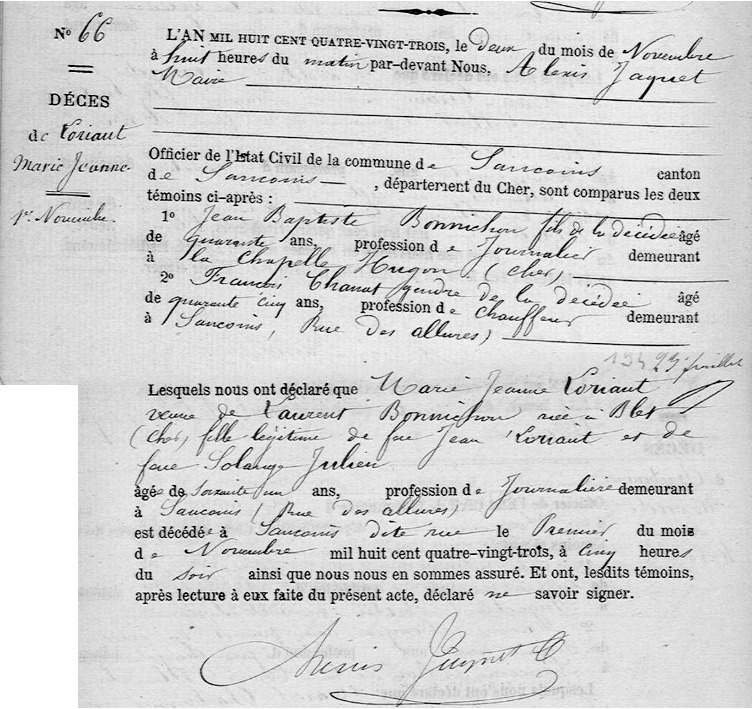 N° 66
DÉCES
de Loriaut
Marie Jeanne
1er Novembre
L'AN MIL HUIT CENT QUATRE-VINGT-TROIS, le deux du mois de Novembre
à huit heures du matin par-devant Nous, Alexis Jaquet
Maire
Officier de l'Etat Civil de la commune de Sancoins canton
de Sancoins , département du Cher, sont comparus les deux
témoins ci-après :
1° Jean Baptiste Bonnichon fils de la décédée âgé
de quarante ans, profession de Journalier demeurant
à la Chapelle Hugon (Cher)
2° François Chanat gendre de la décédée âgé
de quarante cinq ans, profession de chauffeur demeurant
à Sancoins, Rue des allures)
23 juillet
Lesquels nous ont déclaré que Marie Jeanne Loriaut
veuve de Laurent Bonnichon née à Blet
(Cher, fille légitime de feu Jean Loriaut et de
feue Solange Julien
âgée de soixante un ans, profession de Journalière demeurant
à Sancoins (Rue des allures)
est décédée à Sancoins dite rue le Premier du mois
de Novembre mil huit cent quatre-vingt-trois, à Cinq heures
du soir ainsi que nous nous en sommes assuré. Et ont, lesdits témoins,
après lecture à eux faite du présent acte, déclaré ne savoir signer.
Alexis Jaquet